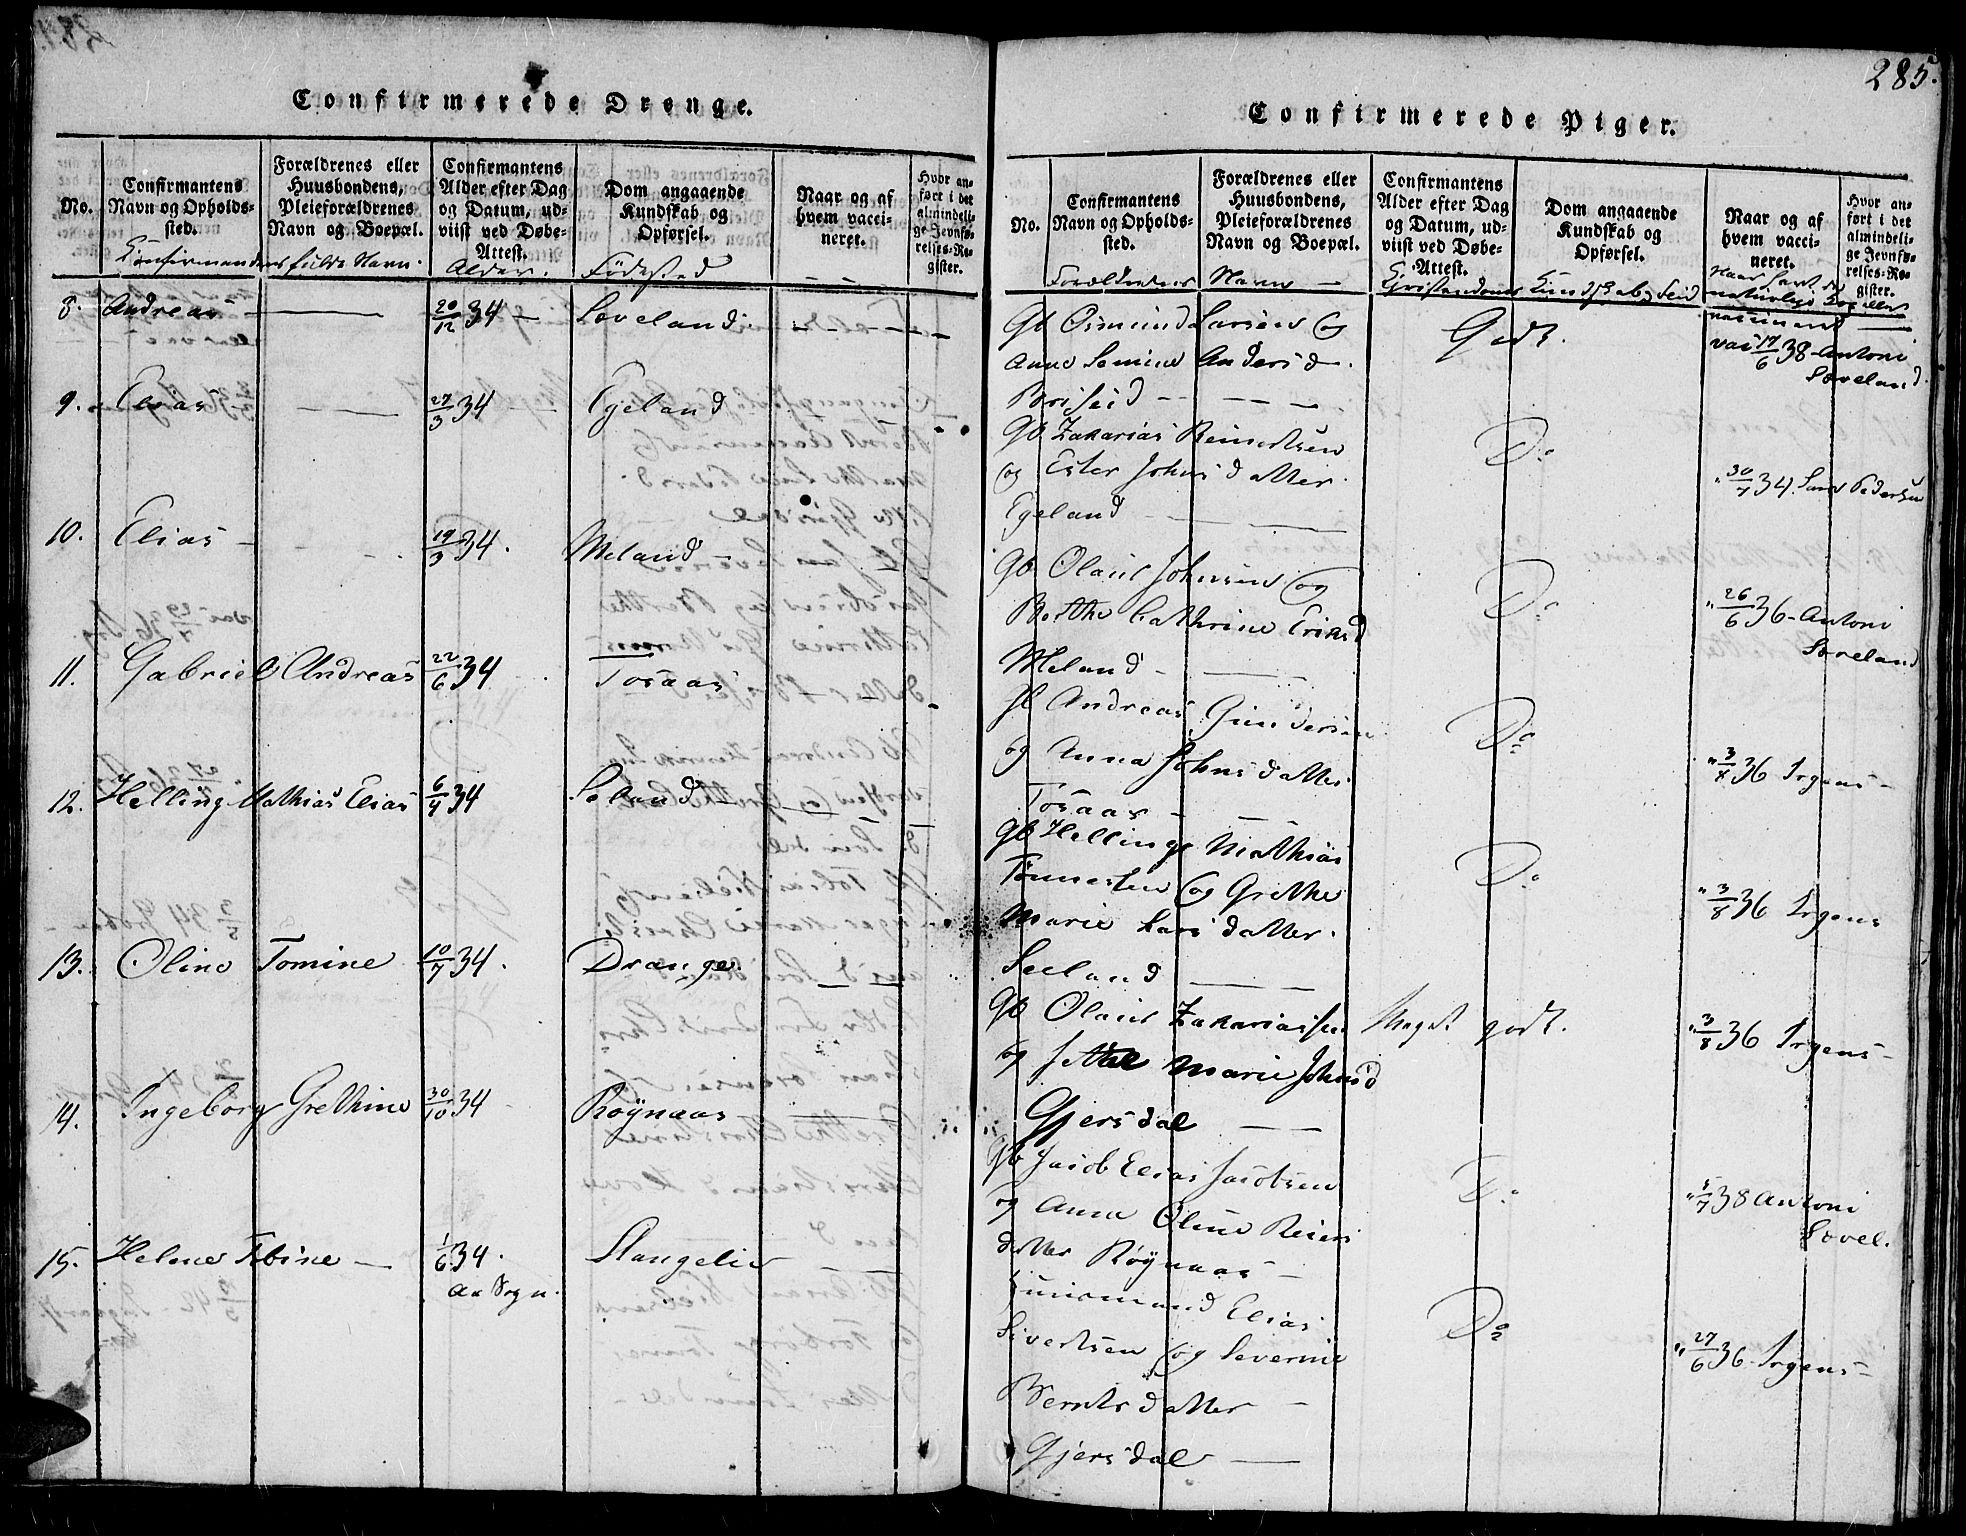 285.
Confirmerede Drenge.
No.
Confirmantens Navn og Opholdssted.
Forældrenes eller Huusbondens, Pleieforældrenes Navn og Boepæl.
Confirmantens Alder efter Dag og Datum, udviist ved Døbe-Attest.
Dom angaaende Kundskab og Opførsel.
Naar og af hvem vaccineret.
Hvor anført i det almindelige Jevnførelses-Register.
Confirmandens fulde Navn.
Alder.
Fødested
8. Andreas — 20/12 34 — Soveland.
9. Elias — 27/3 34 — Egeland
10. Elias — 19/3 34. Meland —
11. Gabriel Andreas 22/6 34 Tosaas
12. Helling Mathias Elias 6/4 34 Seland —
13. Oline Tomine 10/7 34. Drange.
14. Ingeborg Grethine 30/10 34 Röynaas —
15. Helene Tobine — 1/6 34. Stangelie —
Aa Sogn.
Confirmerede Piger.
No.
Confirmantens Navn og Opholdssted.
Forældrenes eller Huusbondens, Pleieforældrenes Navn og Boepæl.
Confirmantens Alder efter Dag og Datum, udviist ved Døbe-Attest.
Dom angaaende Kundskab og Opførsel.
Naar og af hvem vaccineret.
Hvor anført i det almindelige Jevnførelses-Register.
Forældrenes Navn —
Christendoms Kundskab og Flid
naturlige Kopper eller
vaccineret
Gb Osmund Larsen og Godt. vac 17/6 38 - Antoni
Anne Semine Andersd. Soveland
Briseid — —
Gb Zakarias Reinertsen Do
og Ester Johnsdatter. " 30/7 34. Lars Pedersen
Egeland —
Gb Olaus Johnsen og Do " 26/6 36 - Antoni
Berthe Cathrine Eriksd Soveland
Meland —
Gb Andreas Gundersen Do
og Anna Johnsdatter " 3/8 36 Irgens —
Tosaas —
Gb Helling Mathias
Tönnesen og Grethe Do " 3/8 36 Irgens
Marie Larsdatter.
Seeland —
Gb Olaus Zakariassen Meget godt. " 3/8 36 Irgens —
og Marie Johnsd
Gjersdal —
Gb Jacob Elias Jacobsen Do " 5/7 38 Antoni
og Anne Oline Reiers Sovel.
datter Röynaas —
Huusmand Elias Do
Sivertsen og Severine " 27/6 36 - Irgens —
Berntsdatter —
Gjersdal —